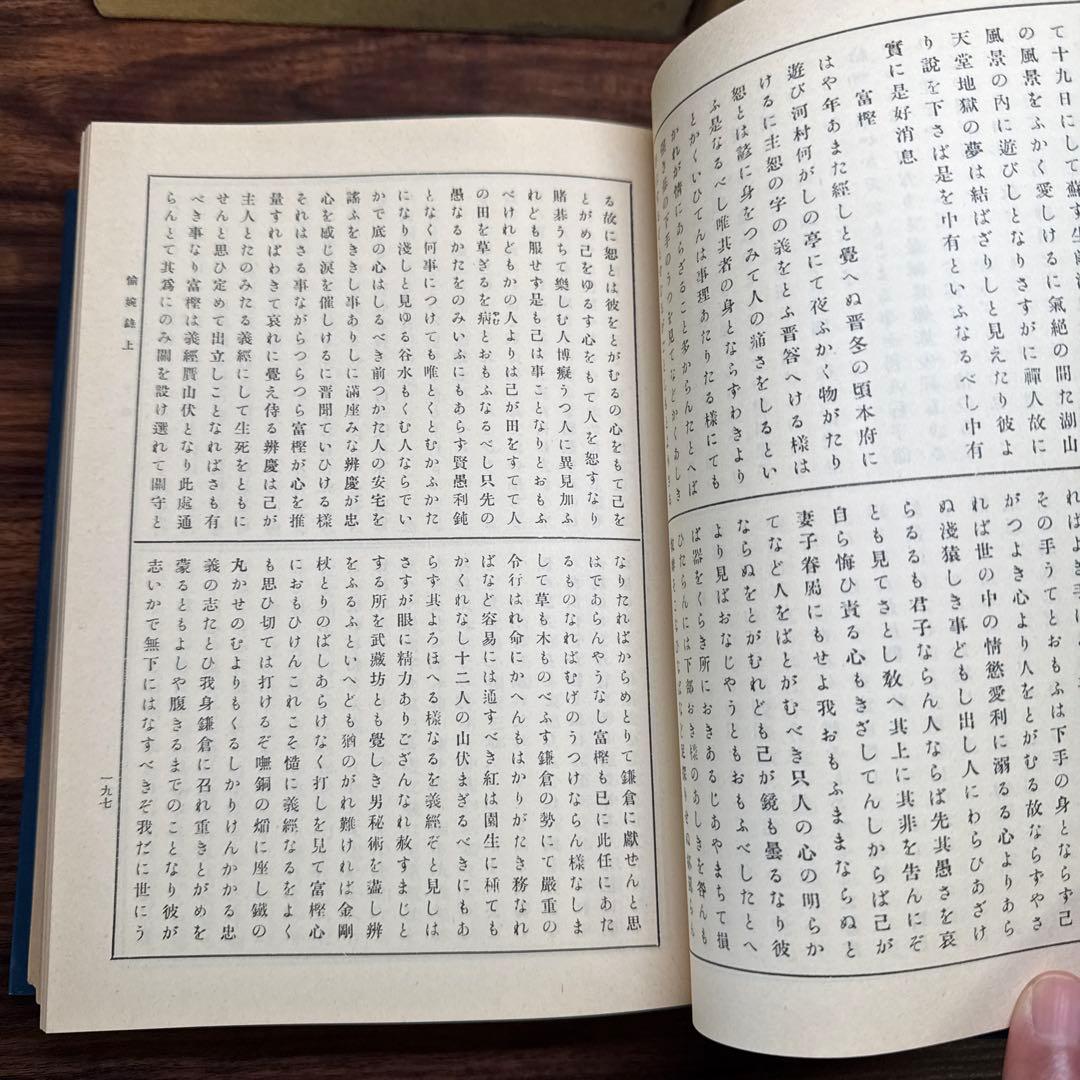 て十九日にして蘇す
に氣絕の間た湖山
の風景をふかく愛しけるに
風景の內に遊びしとなりさすがに禪人故に
天堂地獄の夢は結ばざりしと見えたり彼よ
り說を下さば是を中有といふなるべし中有
實に是好消息
富樫
はや年あまた經しと覺へぬ晋冬の頃木府に
遊び河村何がしの亭にて夜ふかく物がたり
けるに主恕の字の義をとふ晋答へける樣は
恕とは譣に身をつみて人の痛さをしるとい
ふ是なるべし唯其者の身とならずわきより
とかくいひてんは事理あたりたる樣にても
かれが情にあらざること多からんたとへば
その手うてとおもふは下手のすることゝ
がつよき心より人をとがむる故ならずやさ
れば世の中の情慾愛利に溺るる心よりあら
ぬ淺猿しき事どもし出し人にわらひあざけ
らるるも君子ならん人ならば先其愚さを哀
とも見てさとし敎へ其上に其非を吿んにぞ
自ら悔ひ責る心もきざしてんしからば己が
妻子眷屬にもせよ我おもふままならぬと
てなど人をばとがむべき只人の心の明らか
ならぬをとがむれども己が鏡も曇るなり彼
より見ばおなじやうともおおもふべしたとへ
ば器をくらき所におきあるじあやまちて損
ひたらんには下部おき樣のあしきを咎んも
る故に恕とは彼をとがむるの心をもて己を
とがめ己をゆるす心をもて人を恕すなり
賭碁うちて樂しむ人博癡うつ人に異見加ふ
れども服せず是も己は事ことなりとおもふ
べけれどもかの人よりは己が田をすてて人
の田を草ぎるを病とおもふなるべし只先の
やむ
愚なるかたをのみいふにもあらず賢愚利鈍
となく何事につけても唯とくとむかふかた
になり淺しと見ゆる谷水もくむ人ならでい
かで底の心はしるべき前つかた人の安宅を
謠ふをききし事ありしに滿座みな辨慶が忠
心を感じ淚を催しけるに晋聞ていひける樣
それはさる事ながらつらつら富樫が心を推
量すればわきて哀れに覺え侍る辨慶は己が
主人とたのみたる義經にして生死をともに
せんと思ひ定めて出立しことなればさも有
べき事なり富樫は義經贋山伏となり此處通
らんとて其爲にのみ關を設け選れて關守と
なりたればからめとりて鎌倉に獻せんと思
はであらんやうなし富樫も已に此任にあた
るものなればむげのうつけならん樣なしま
して草も木ものべふす鎌倉の勢にて嚴重の
令行はれ命にかへんもはかりがたき務なれ
ばなど容易には通すべき紅は園生に種ても
かくれなし十二人の山伏まぎるべきにもあ
らず其よろほへる樣なるを義經ぞと見しは
さすが眼に精力ありござんなれ赦すまじと
する所を武藏坊とも覺しき男秘術を盡し辨
をふるふといへども猶のがれ難ければ金剛
杖とりのばしあらけなく打しを見て富樫心
におもひけんこれこそ慥に義經なるをよく
も思ひ切ては打けるぞ嘸銅の熖に座し鐵の
丸かせのむよりもくるしかりけんかかる忠
義の志たとひ我身鎌倉に召れ重きとがめを
蒙るともよしや腹きるまでのことなり彼が
志いかで無下にはなすべきぞ我だに世にう
愉婉錄 上
一九七